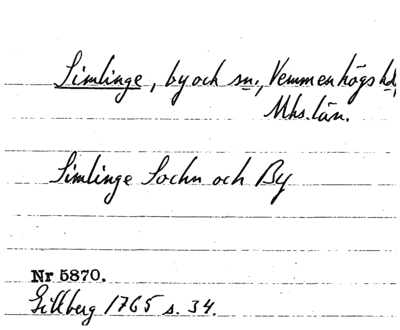 Simlinge, by och sn., Vemmenhögs hd,
Mhs. län.
Simlinge Sochn och By
Nr 5870.
Gillberg 1765 s. 34.